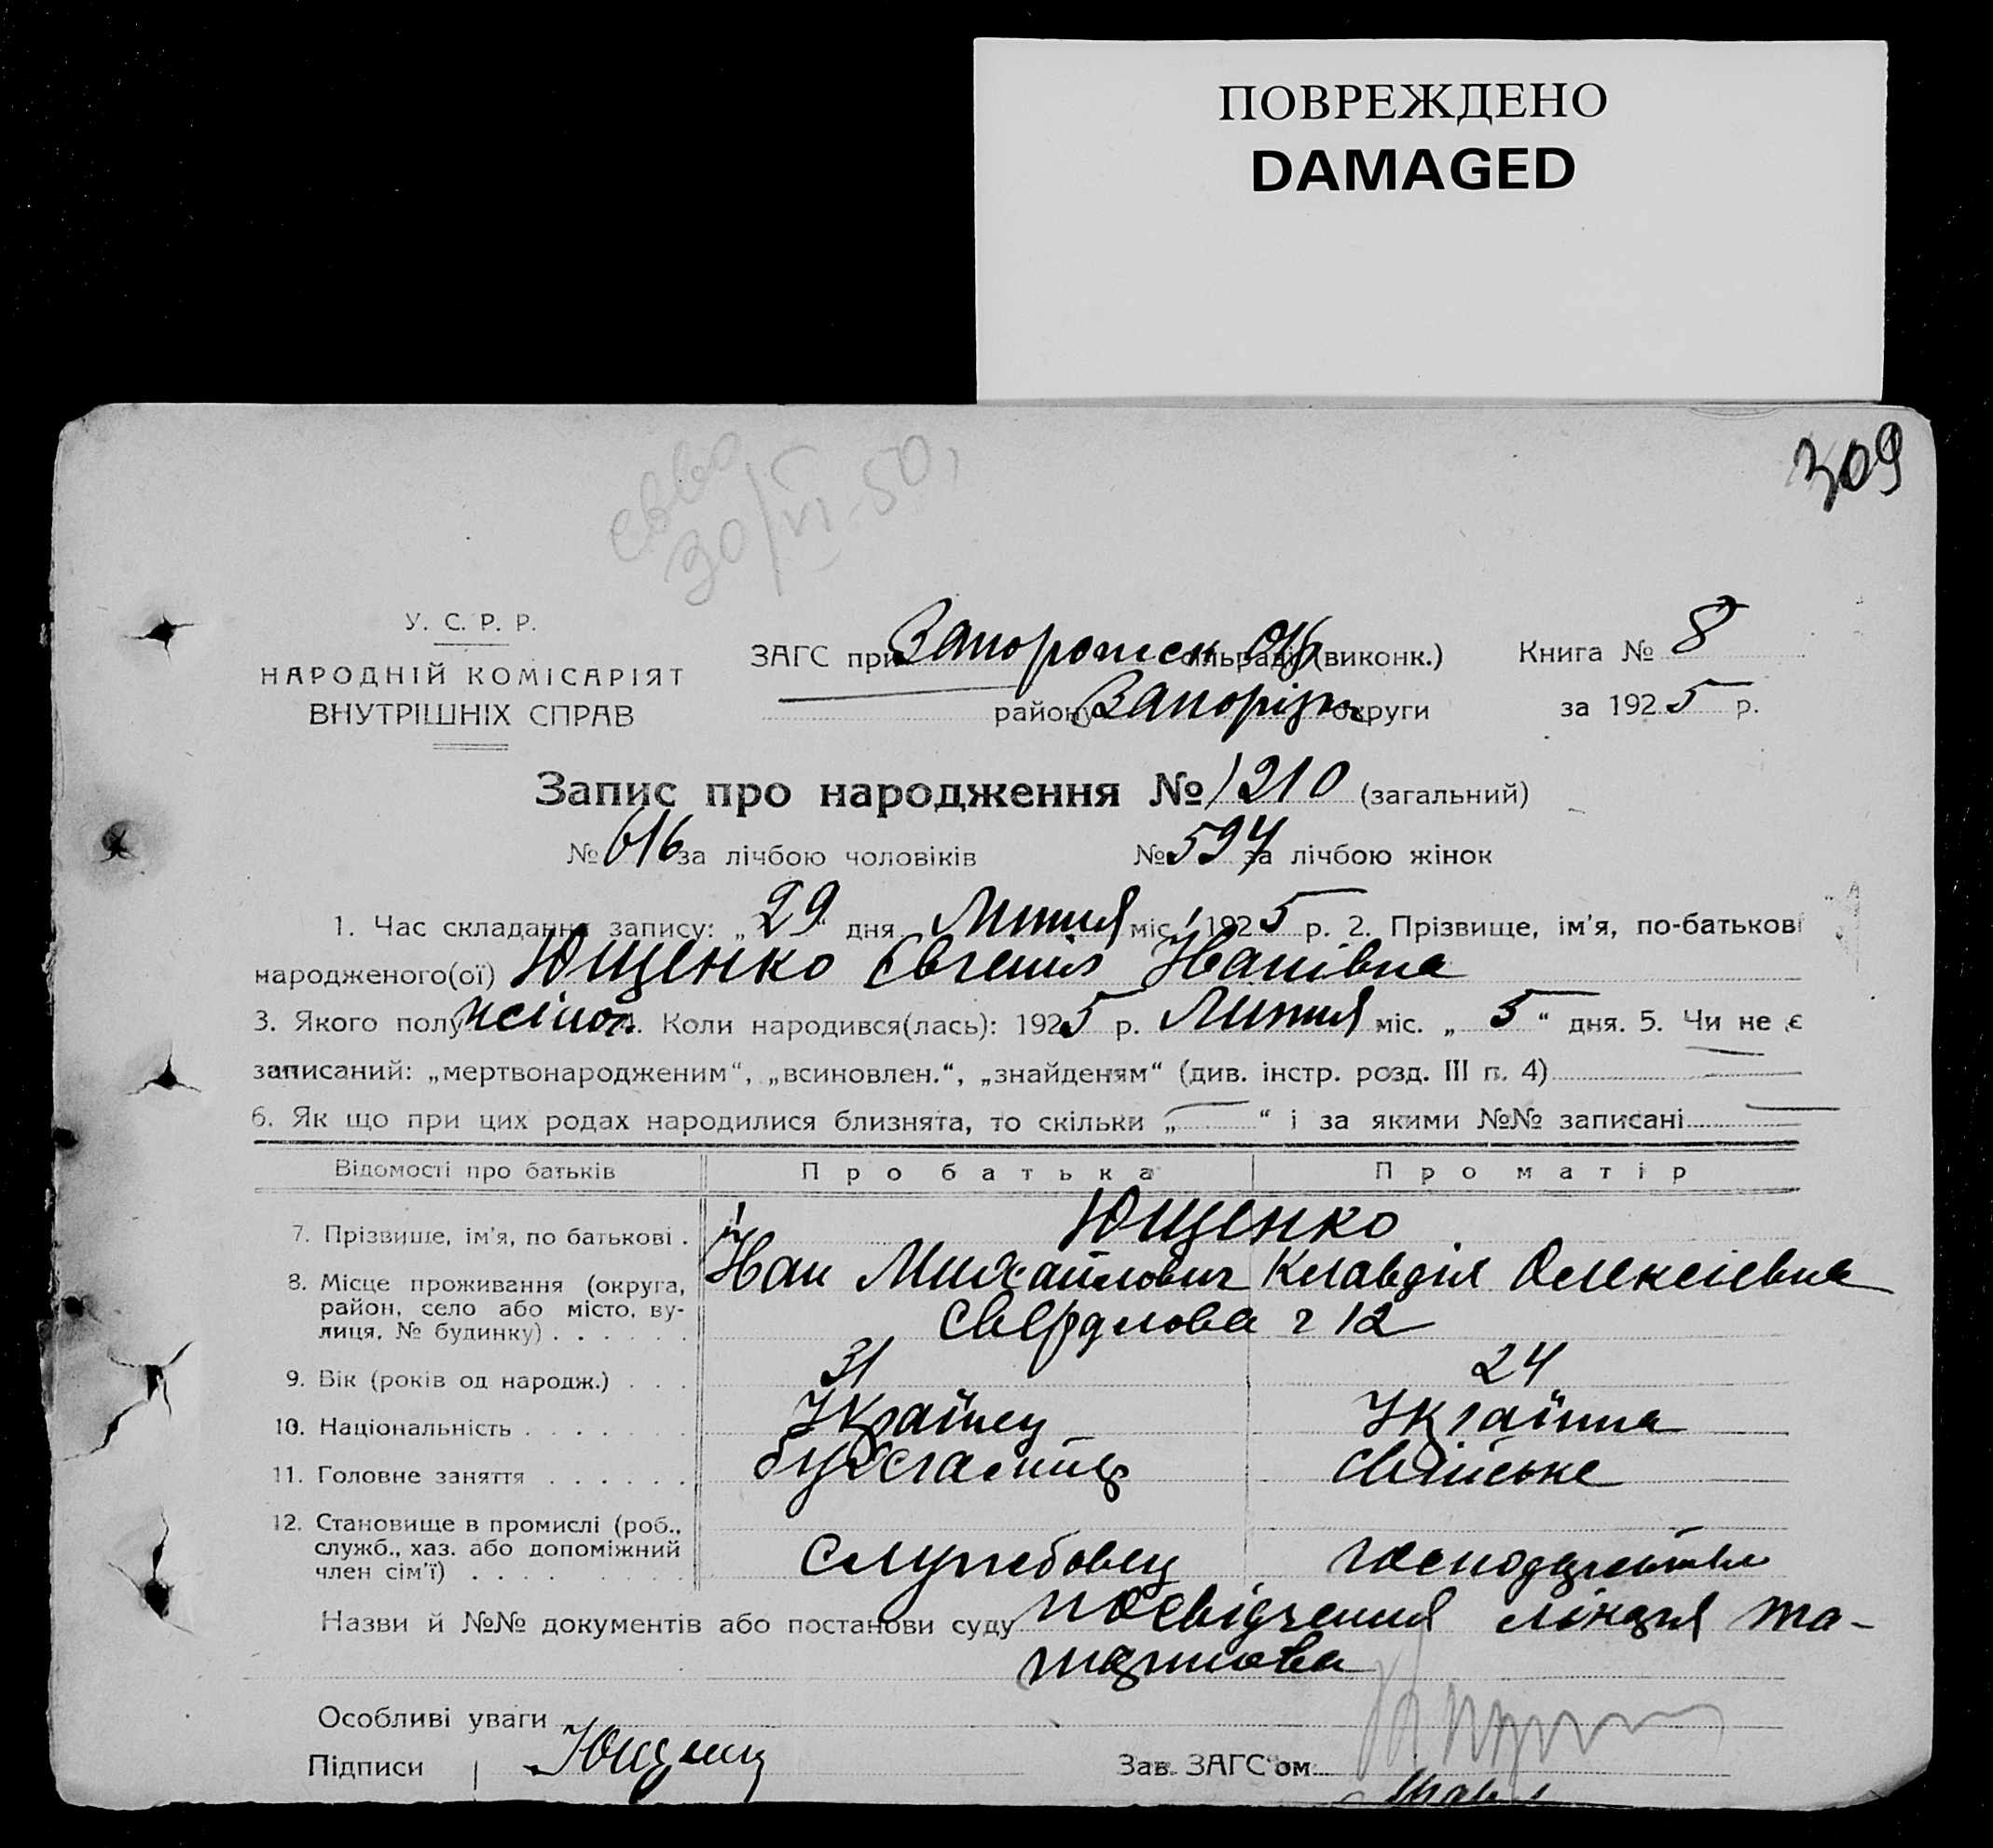 ПОВРЕЖДЕНО
DAMAGED
309
30/VI-50,
У. С. Р. Р.
НАРОДНІЙ КОМІСАРІЯТ
ВНУТРІШНІХ СПРАВ
ЗАГС при Запорожск сільраді (виконк.)
району Запорізьк округи
Книга № 8
за 1925 р.
Запис про народження № 1210 (загальний)
№ 616 за лічбою чоловіків № 594 за лічбою жінок
1. Час складання запису: „29" дня Липня міс. 1925 р. 2. Прізвище, ім'я, по-батькові
народженого(ої) Ющенко Євгенія Іванівна
3. Якого полу жіноч. 4. Коли народився(лась): 1925 р. Липня міс. „5" дня. 5. Чи не є
записаний: „мертвонародженим", „всиновлен.", „знайденям" (див. інстр. розд. III п. 4)
6. Як що при цих родах народилися близнята, то скільки „—" і за якими №№ записані —
Відомості про батьків Про батька Про матір
7. Прізвище, ім'я, по батькові . Ющенко
Іван Михайлович Клавдія Олексіевна
8. Місце проживання (округа,
район, село або місто, ву-
лиця, № будинку) . . . . . . Свердлова 2 12
9. Вік (років од народж.) . . . 31 24
10. Національність . . . . . . . Українец Українка
11. Головне заняття . . . . . . бухгалтер свійське
12. Становище в промислі (роб.,
служб., хаз. або допоміжний
член сім'ї) . . . . службовец господарство
Назви й №№ документів або постанови суду посвідчення
Особливі уваги
Підписи Ющенк
Зав. ЗАГС'ом